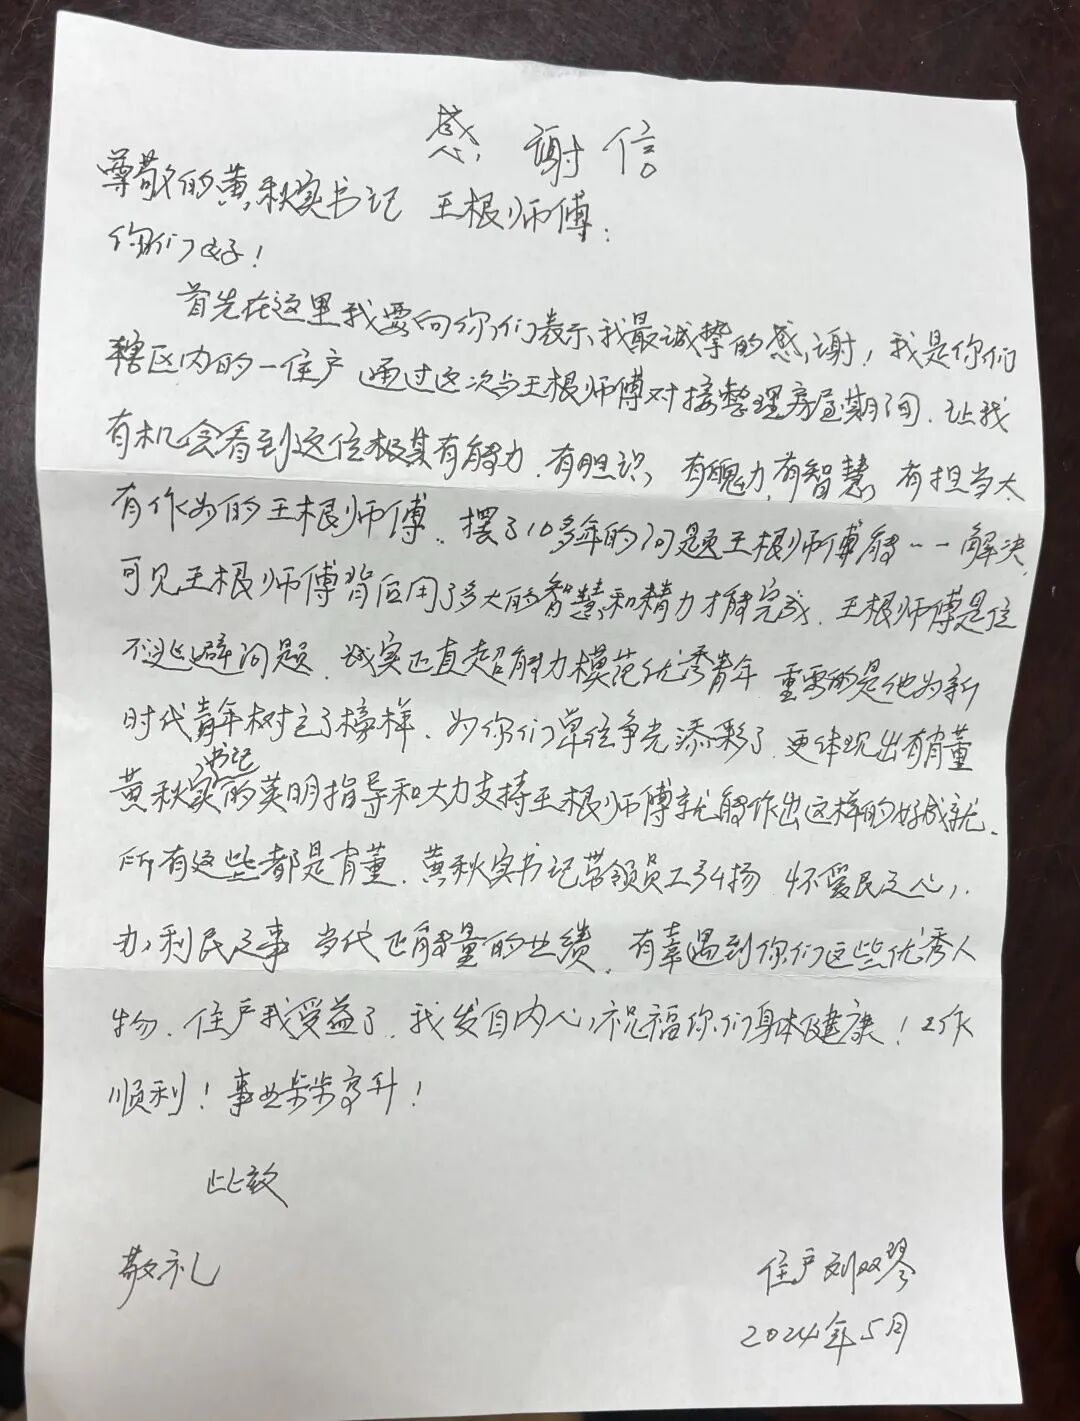 感谢信
尊敬的黄秋实书记 王根师傅：
你们好！
首先在这里我要向你们表示我最诚挚的感谢！我是你们
辖区内的一住户 通过这次与王根师傅对接整理房屋期间.让我
有机会看到这位极具有能力.有胆识，有魄力，有智慧，有担当大
有作为的王根师傅.摆了10多年的问题王根师傅能一一解决，
可见王根师傅背后用了多大的智慧和精力才能完成.王根师傅是位
不逃避问题.诚实正直超能力模范优秀青年 重要的是他为新
时代青年树立了榜样.为你们单位争光添彩了.更体现出有董
书记
黄秋实的英明指导和大力支持王根师傅就能作出这样的好成就.
所有这些都是有董.黄秋实书记带领员工弘扬 怀爱民之心，
办利民之事 当代正能量的业绩.有幸遇到你们这些优秀人
物.住户我受益了.我发自内心祝福你们身体健康！工作
顺利！事业步步高升！
此致
敬礼
住户刘双琴
2024年5月